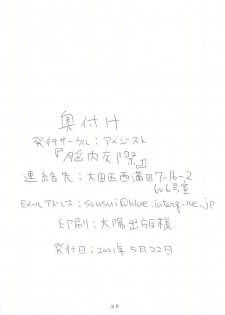 奥付け
発行サークル：アメジスト
『脳内交際』
連絡先：大田区西蒲田7-16-2
606号室
Eメールアドレス：sousui@blue.interq.ne.jp
印刷：大陽出版様
発行日：2001年5月22日
30